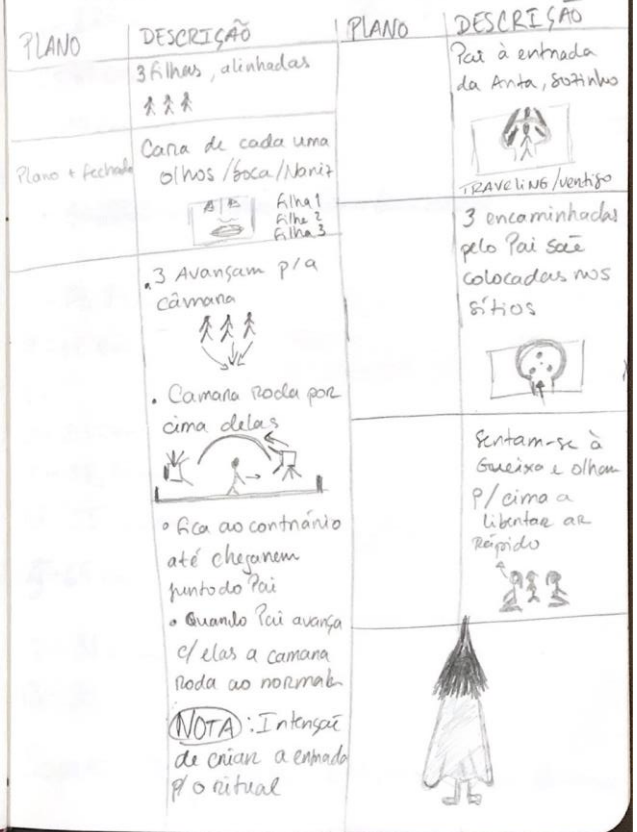 PLANO
DESCRIÇÃO
3 filhas, alinhadas
Plano + fechado
Cara de cada uma
olhos/boca/Nariz
Filha 1
Filha 2
Filha 3
. 3 Avançam p/a
câmara
. Camara Roda por
cima delas
• fica ao contrário
até chegarem
junto do Pai
• Quando Pai avança
c/ elas a camara
Roda ao normal
NOTA: Intenção
de criar a entrada
p/ o ritual
PLANO
DESCRIÇÃO
Pai à entrada
da Anta, sozinho
TRAVELING/vertigo
3 encaminhadas
pelo Pai são
colocadas nos
sítios
Sentam-se à
Gueixa e olham
p/ cima a
libertar ar
Rápido